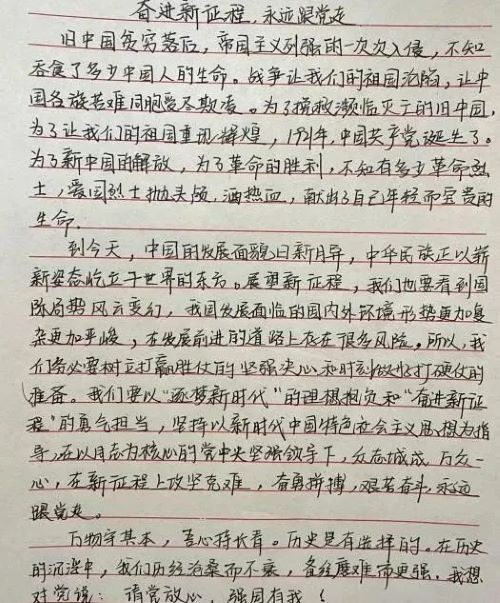 奋进新征程,永远跟党走
旧中国贫穷落后,帝国主义列强的一次次入侵,不知
吞食了多少中国人的生命。战争让我们的祖国沦陷,让中
国各族苦难同胞受尽欺凌。为了拯救濒临灭亡的旧中国,
为了让我们的祖国重现辉煌,1921年,中国共产党诞生了。
为了新中国的解放,为了革命的胜利,不知有多少革命烈
士,爱国烈士抛头颅,洒热血,献出了自己年轻而宝贵的
生命.
到今天,中国的发展面貌日新月异,中华民族正以崭
新姿态屹立于世界的东方。展望新征程,我们也要看到国
际局势风云变幻,我国发展面临的国内外环境形势更加复
杂更加严峻,在发展前进的道路上存在很多风险。所以,我
们务必要树立打赢胜仗的坚强决心和时刻做好打硬仗的
准备。我们要以“逐梦新时代”的理想抱负和“奋进新征
程”的勇气担当,坚持以新时代中国特色社会主义思想为指
导,在以同志为核心的党中央坚强领导下,众志城成 万众一
心,在新征程上攻坚克难,奋勇拼搏,艰苦奋斗,永远
跟党走。
万物守其本,吾心持长看。历史是有选择的。在历史
的沉浸中,我们历经沧桑而不衰,备经磨难而更强,我想
对党说:请党放心,强国有我!